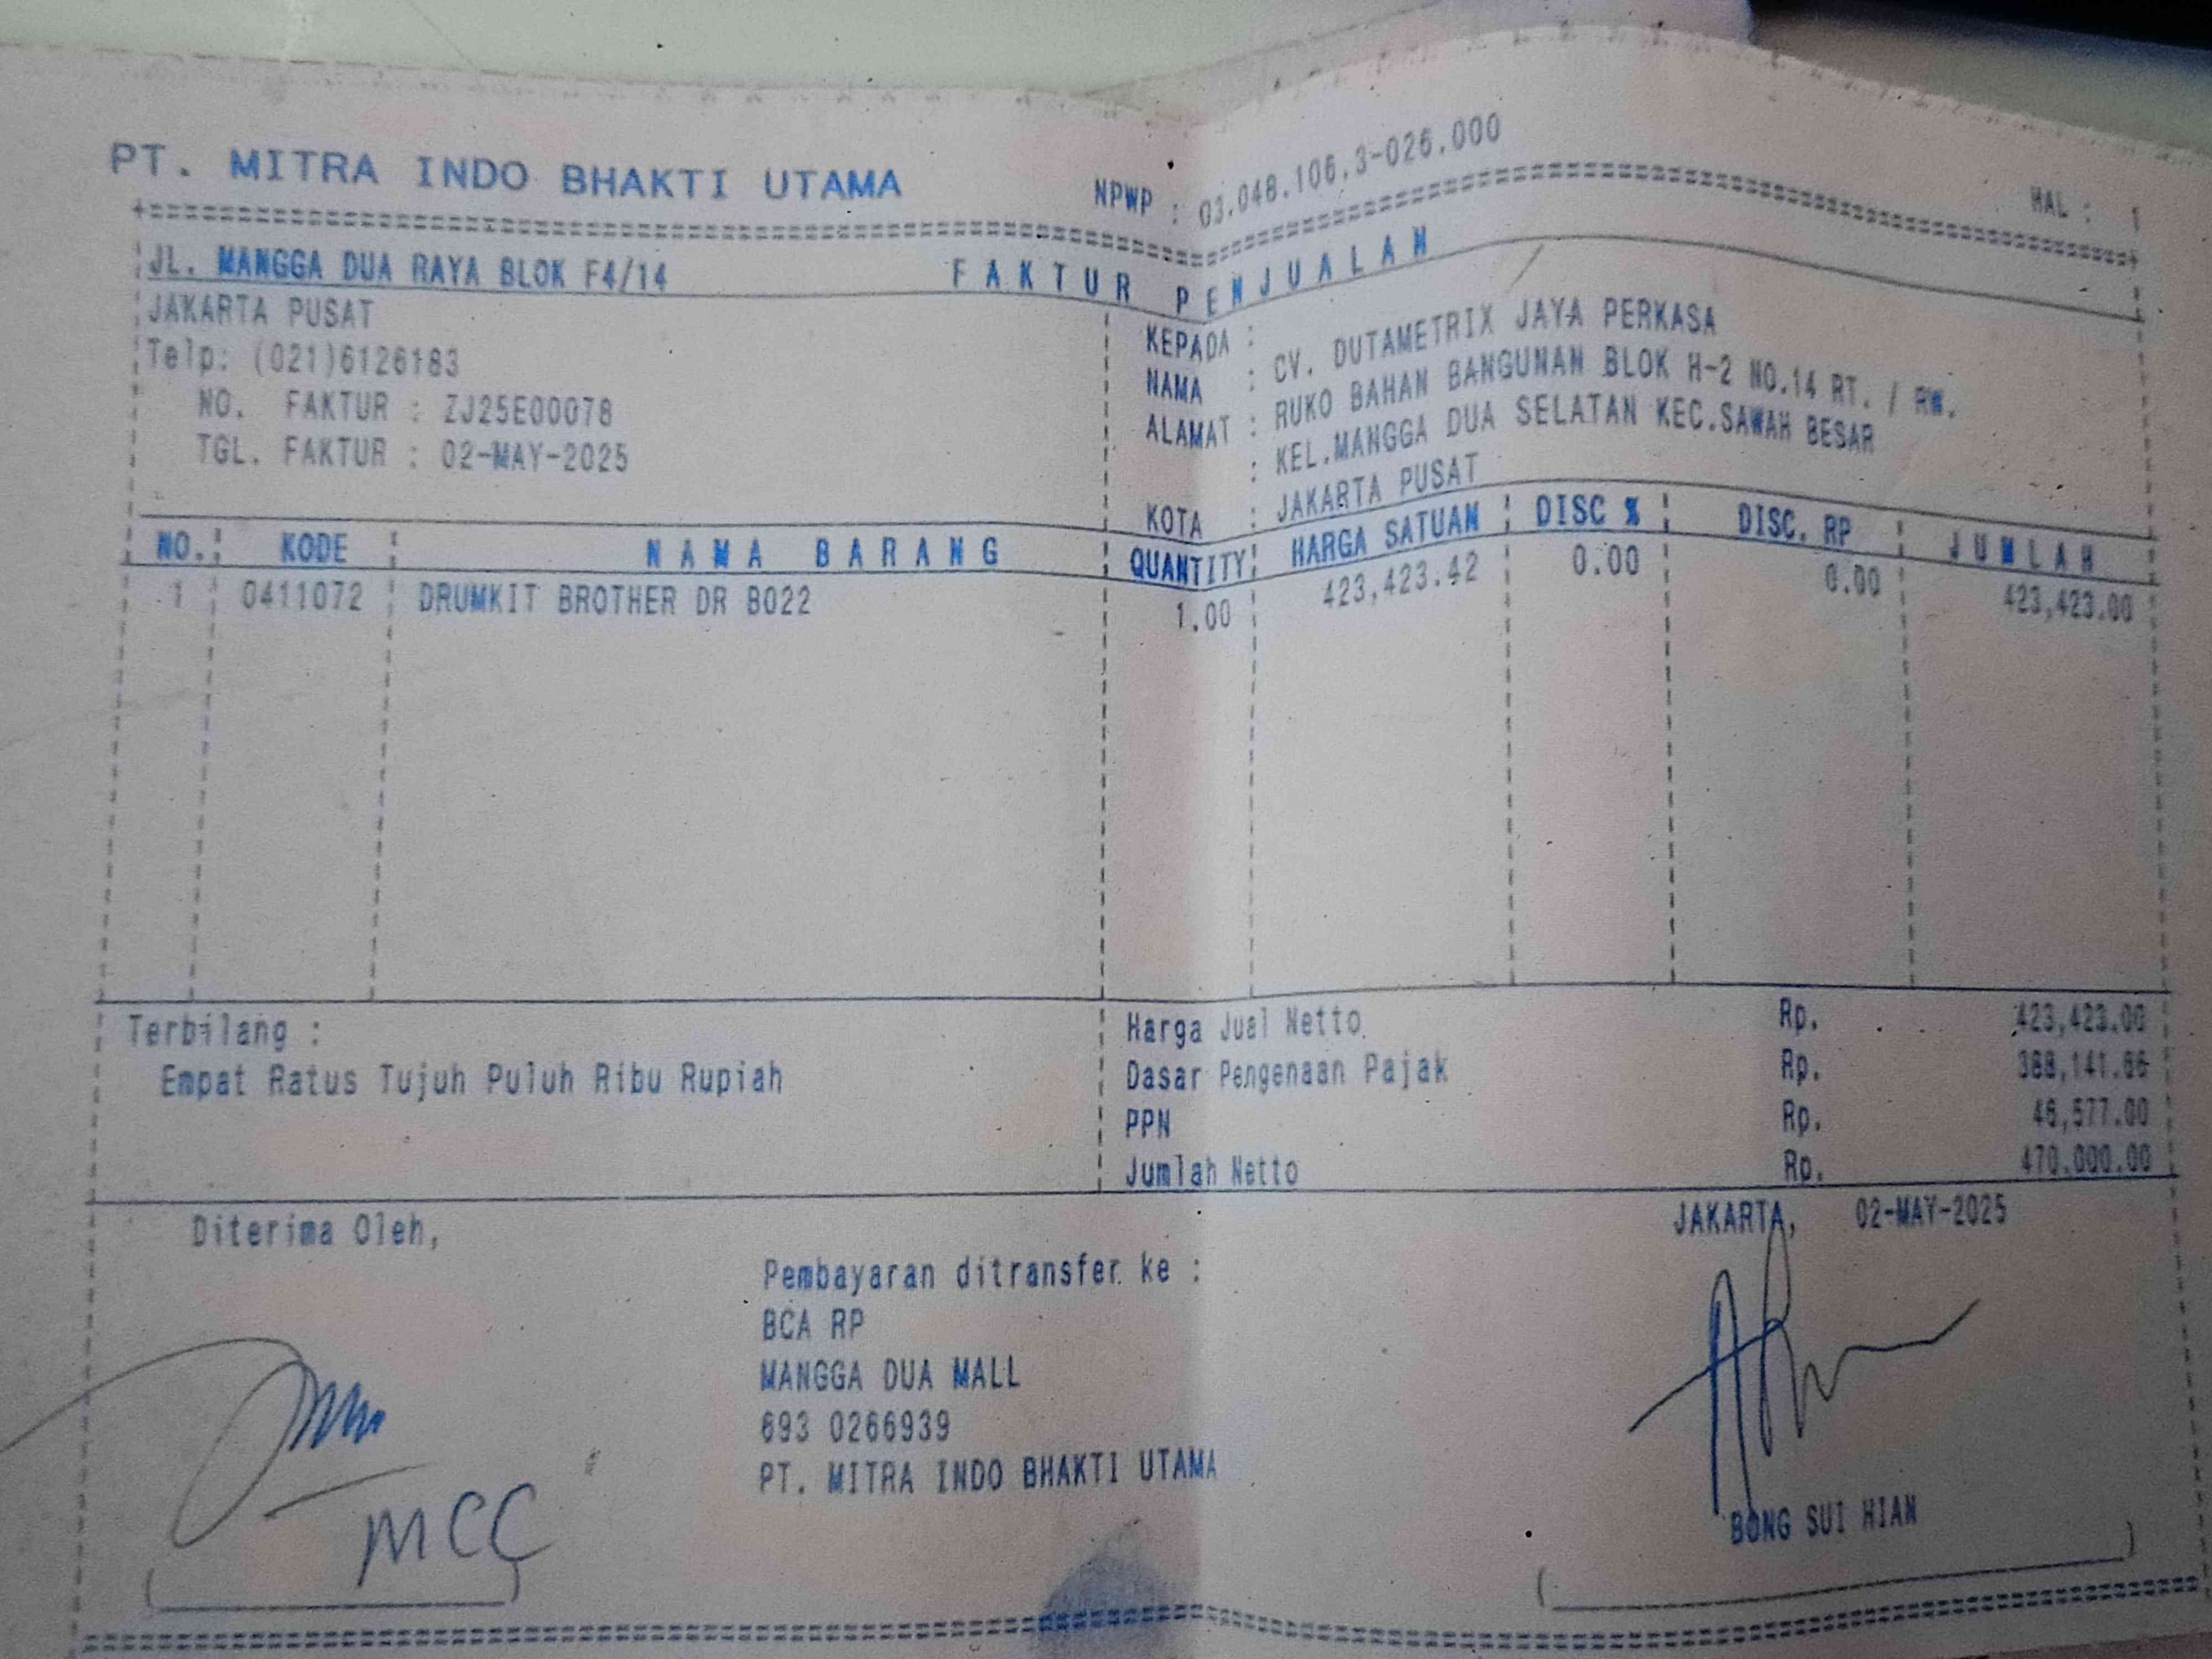 PT. MITRA INDO BHAKTI UTAMA
NPWP : 03.048.106.3-026.000
HAL : 1
JL. MANGGA DUA RAYA BLOK F4/14
FAKTUR PENJUALAN
JAKARTA PUSAT
Telp: (021)6126183
NO. FAKTUR : ZJ25E00078
TGL. FAKTUR : 02-MAY-2025
KEPADA :
NAMA : CV. DUTAMETRIX JAYA PERKASA
ALAMAT : RUKO BAHAN BANGUNAN BLOK H-2 NO.14 RT. / RW.
: KEL.MANGGA DUA SELATAN KEC.SAWAH BESAR
KOTA : JAKARTA PUSAT
NO. KODE NAMA BARANG QUANTITY HARGA SATUAN DISC % DISC. RP JUMLAH
1 0411072 DRUMKIT BROTHER DR B022 1.00 423,423.42 0.00 0.00 423,423.00
Terbilang :
Empat Ratus Tujuh Puluh Ribu Rupiah
Harga Jual Netto Rp. 423,423.00
Dasar Pengenaan Pajak Rp. 388,141.86
PPN Rp. 46,577.00
Jumlah Netto Rp. 470.000.00
Diterima Oleh,
MCC
Pembayaran ditransfer ke :
BCA RP
MANGGA DUA MALL
693 0266939
PT. MITRA INDO BHAKTI UTAMA
JAKARTA, 02-MAY-2025
BONG SUI HIAN